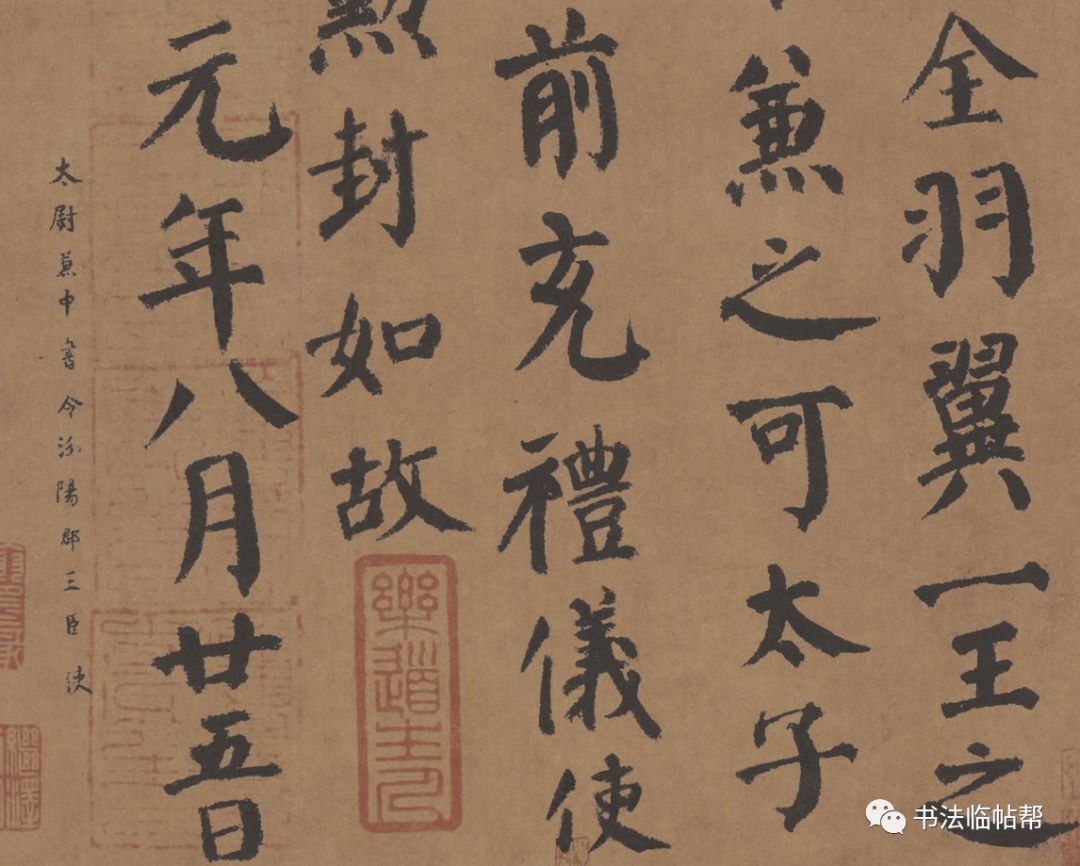 全羽翼一王之
兼之可太子
前充禮儀使
勲封如故
元年八月廿五日
太尉兼中書令汾陽郡王臣 使
樂道主人
书法临帖帮